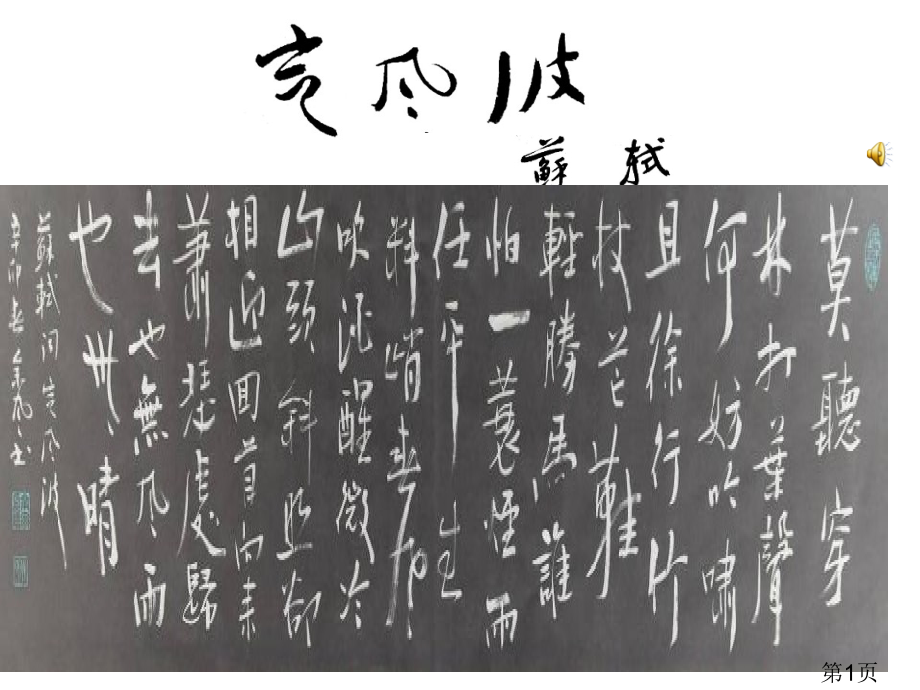 定风波
蘇 軾
莫聽穿
林打葉聲
何妨吟嘯
且徐行竹
杖芒鞋
輕勝馬誰
怕一蓑煙雨
任平生
料峭春风
吹酒醒微冷
山頭斜照卻
相迎回首向来
蕭瑟處歸
去也無风雨
也無晴
蘇軾词定风波
辛卯春
第1页